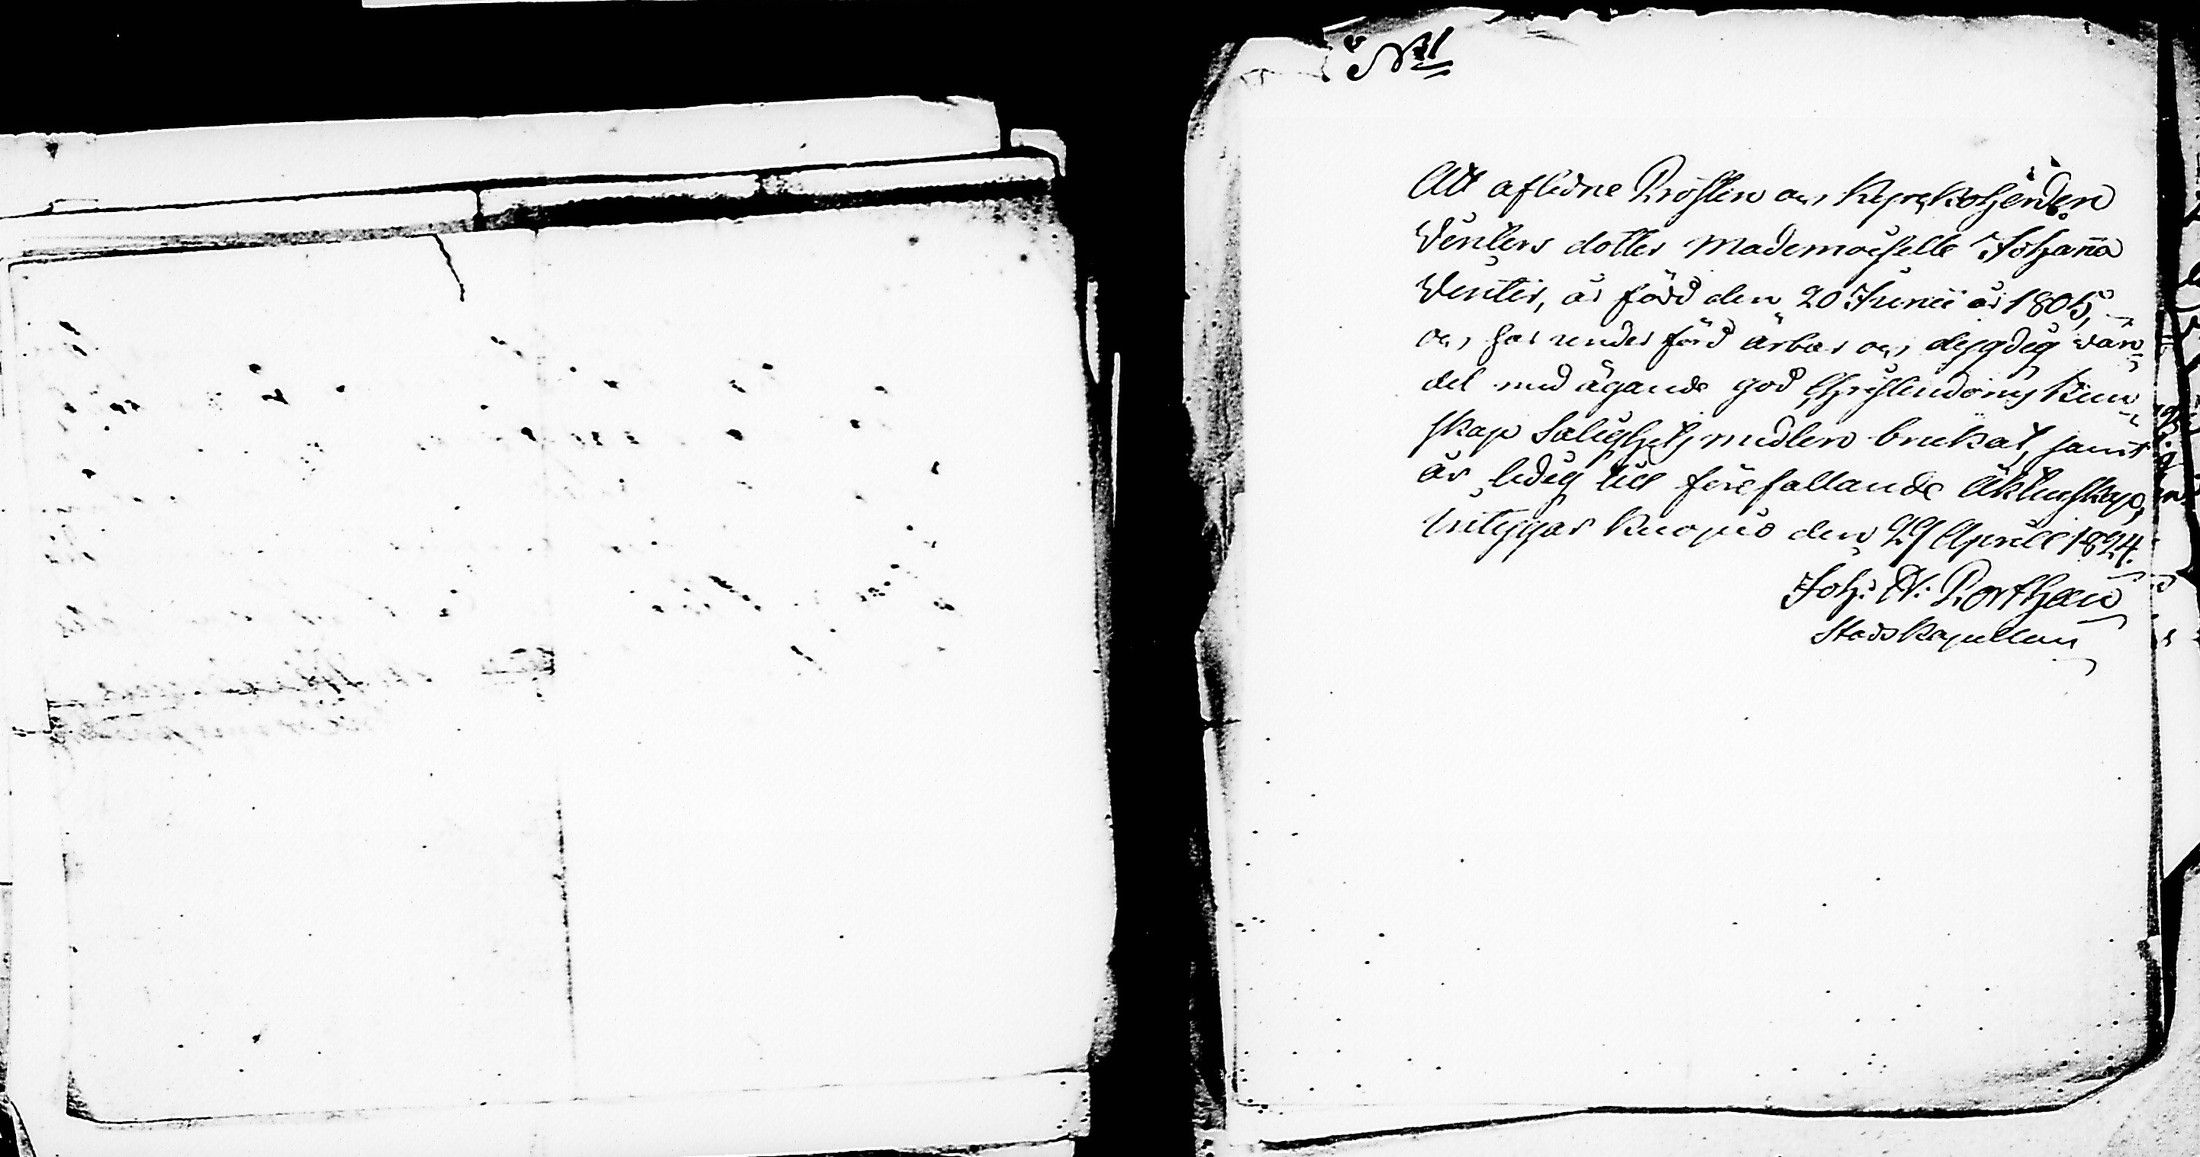 N 1
Att aflidne Prosten och Kyrckoherden
Wenters dotter Mademoiselle Johanna
Wenter, är född den 20 Junii år 1805,
och har under förd ärbar och dygdig van-
del med ägande god Christendoms Kun-
skap Salighets medlen brukat, samt
är ledig till förefallande Äktenskap,
intygar Kuopio den 29 Aprill 1824.
Joh: N: Porthan
Stads kapellan